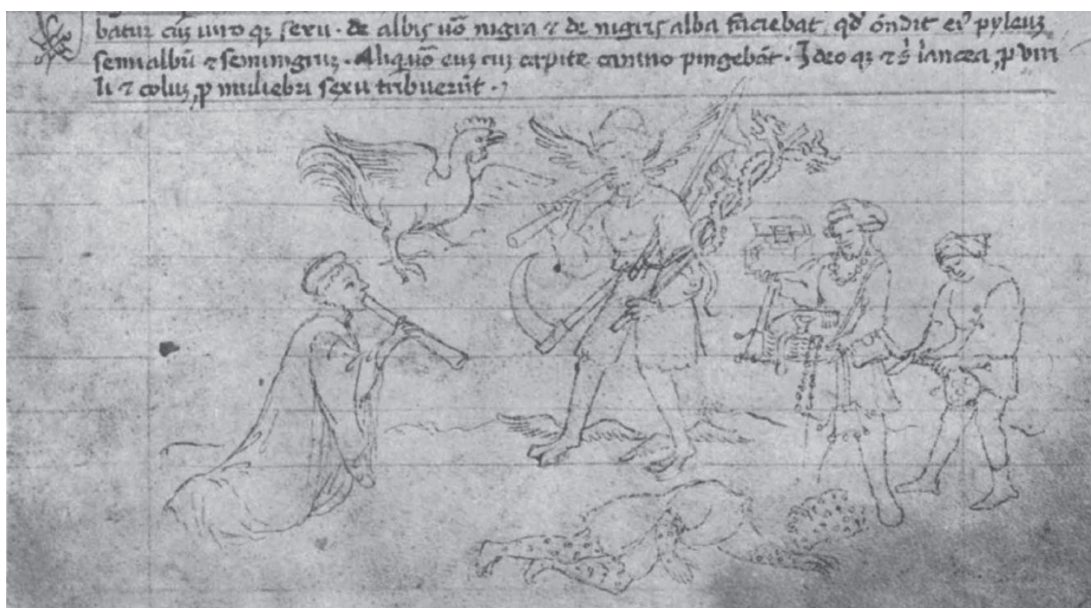 batur cuʒ uiro qʒ sexu · de albis uō nigra ⁊ de nigris alba faciebat, qđ ōndit ei' pyleuʒ
semialbū ⁊ seminigruʒ · Aliquōn eus cuʒ capite canino pingebāt · Ideo qʒ ⁊ lancea ꝓ viri
li ⁊ colus ꝓ muliebri sexu tribuerūt ·